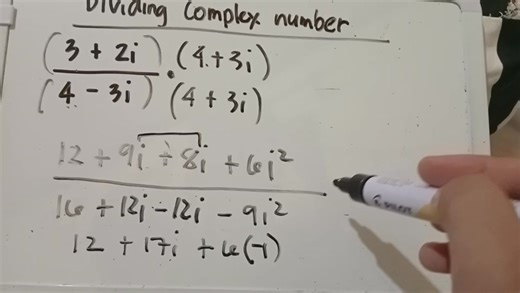 Dividing Complex number
(3 + 2i) . (4+3i)
(4 - 3i) (4 + 3i)
12 + 9i + 8i + 6i²
16 + 12i - 12i - 9i²
12 + 17i + 6(-1)